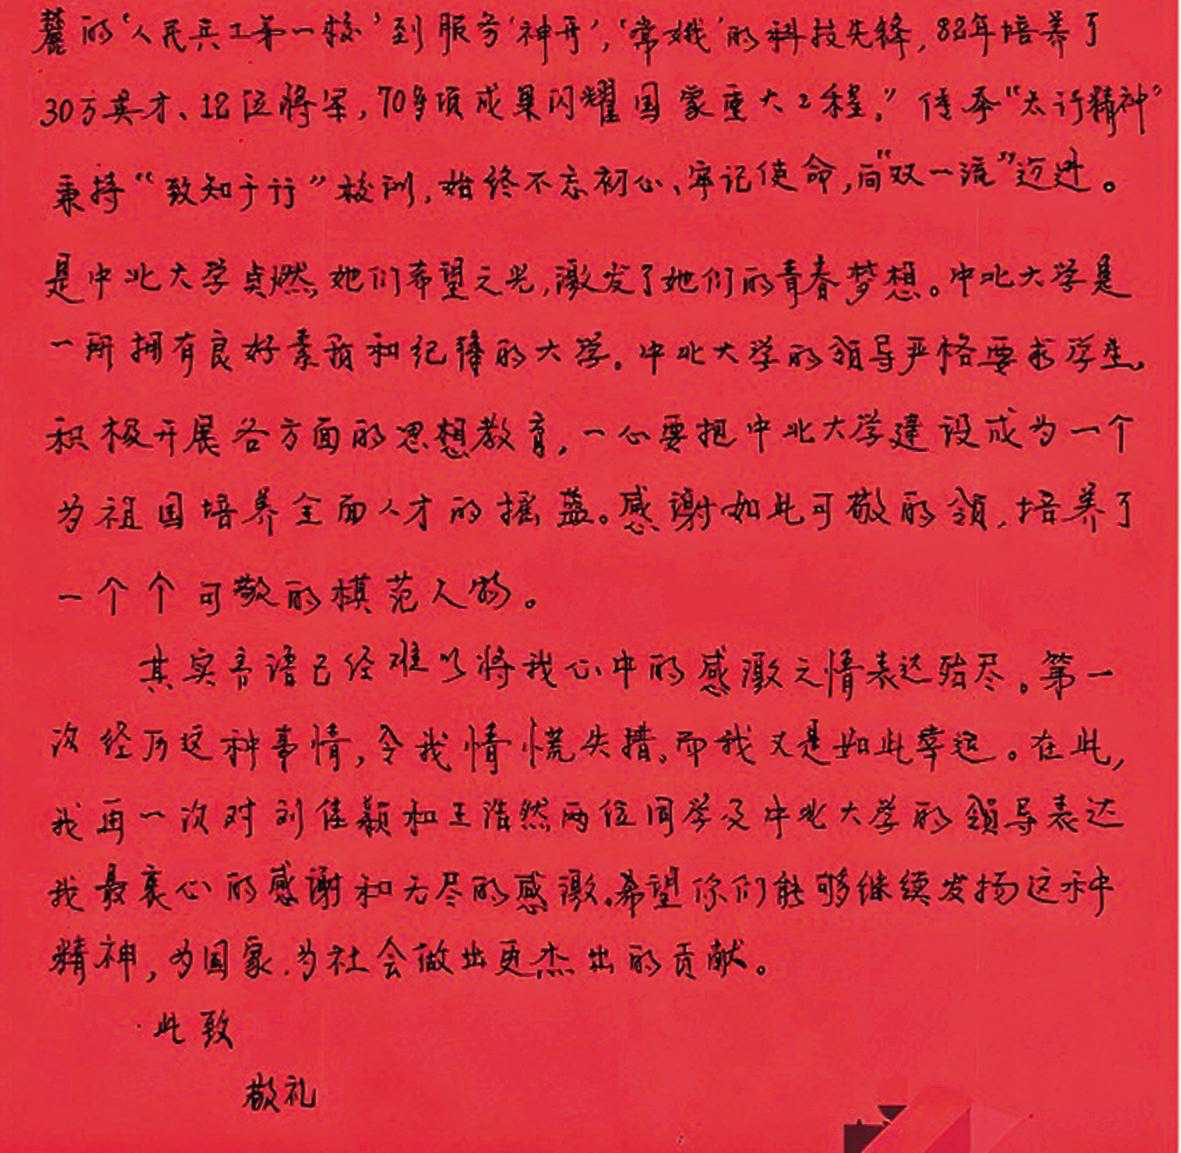 麓的‘人民兵工第一校’到服务‘神舟’,‘常娥’的科技先锋,82年培养了
30万英才、12位将军,70多项成果闪耀国家重大工程。”传承“太行精神”
秉持“致知于行”校训,始终不忘初心、牢记使命,向“双一流”迈进。
是中北大学点燃她们希望之光,激发了她们的青春梦想。中北大学是
一所拥有良好素质和纪律的大学。中北大学的领导严格要求学生。
积极开展各方面的思想教育,一心要把中北大学建设成为一个
为祖国培养全面人才的摇蓝。感谢如此可敬的领,培养了
一个个可敬的模范人物。
其实言语已经难以将我心中的感激之情表达殆尽。第一
次经历这种事情,令我情慌失措,而我又是如此幸运。在此,
我再一次对刘佳颖和王浩然两位同学及中北大学的领导表达
我最衷心的感谢和无尽的感激。希望你们能够继续发扬这种
精神,为国家.为社会做出更杰出的贡献。
此致
敬礼